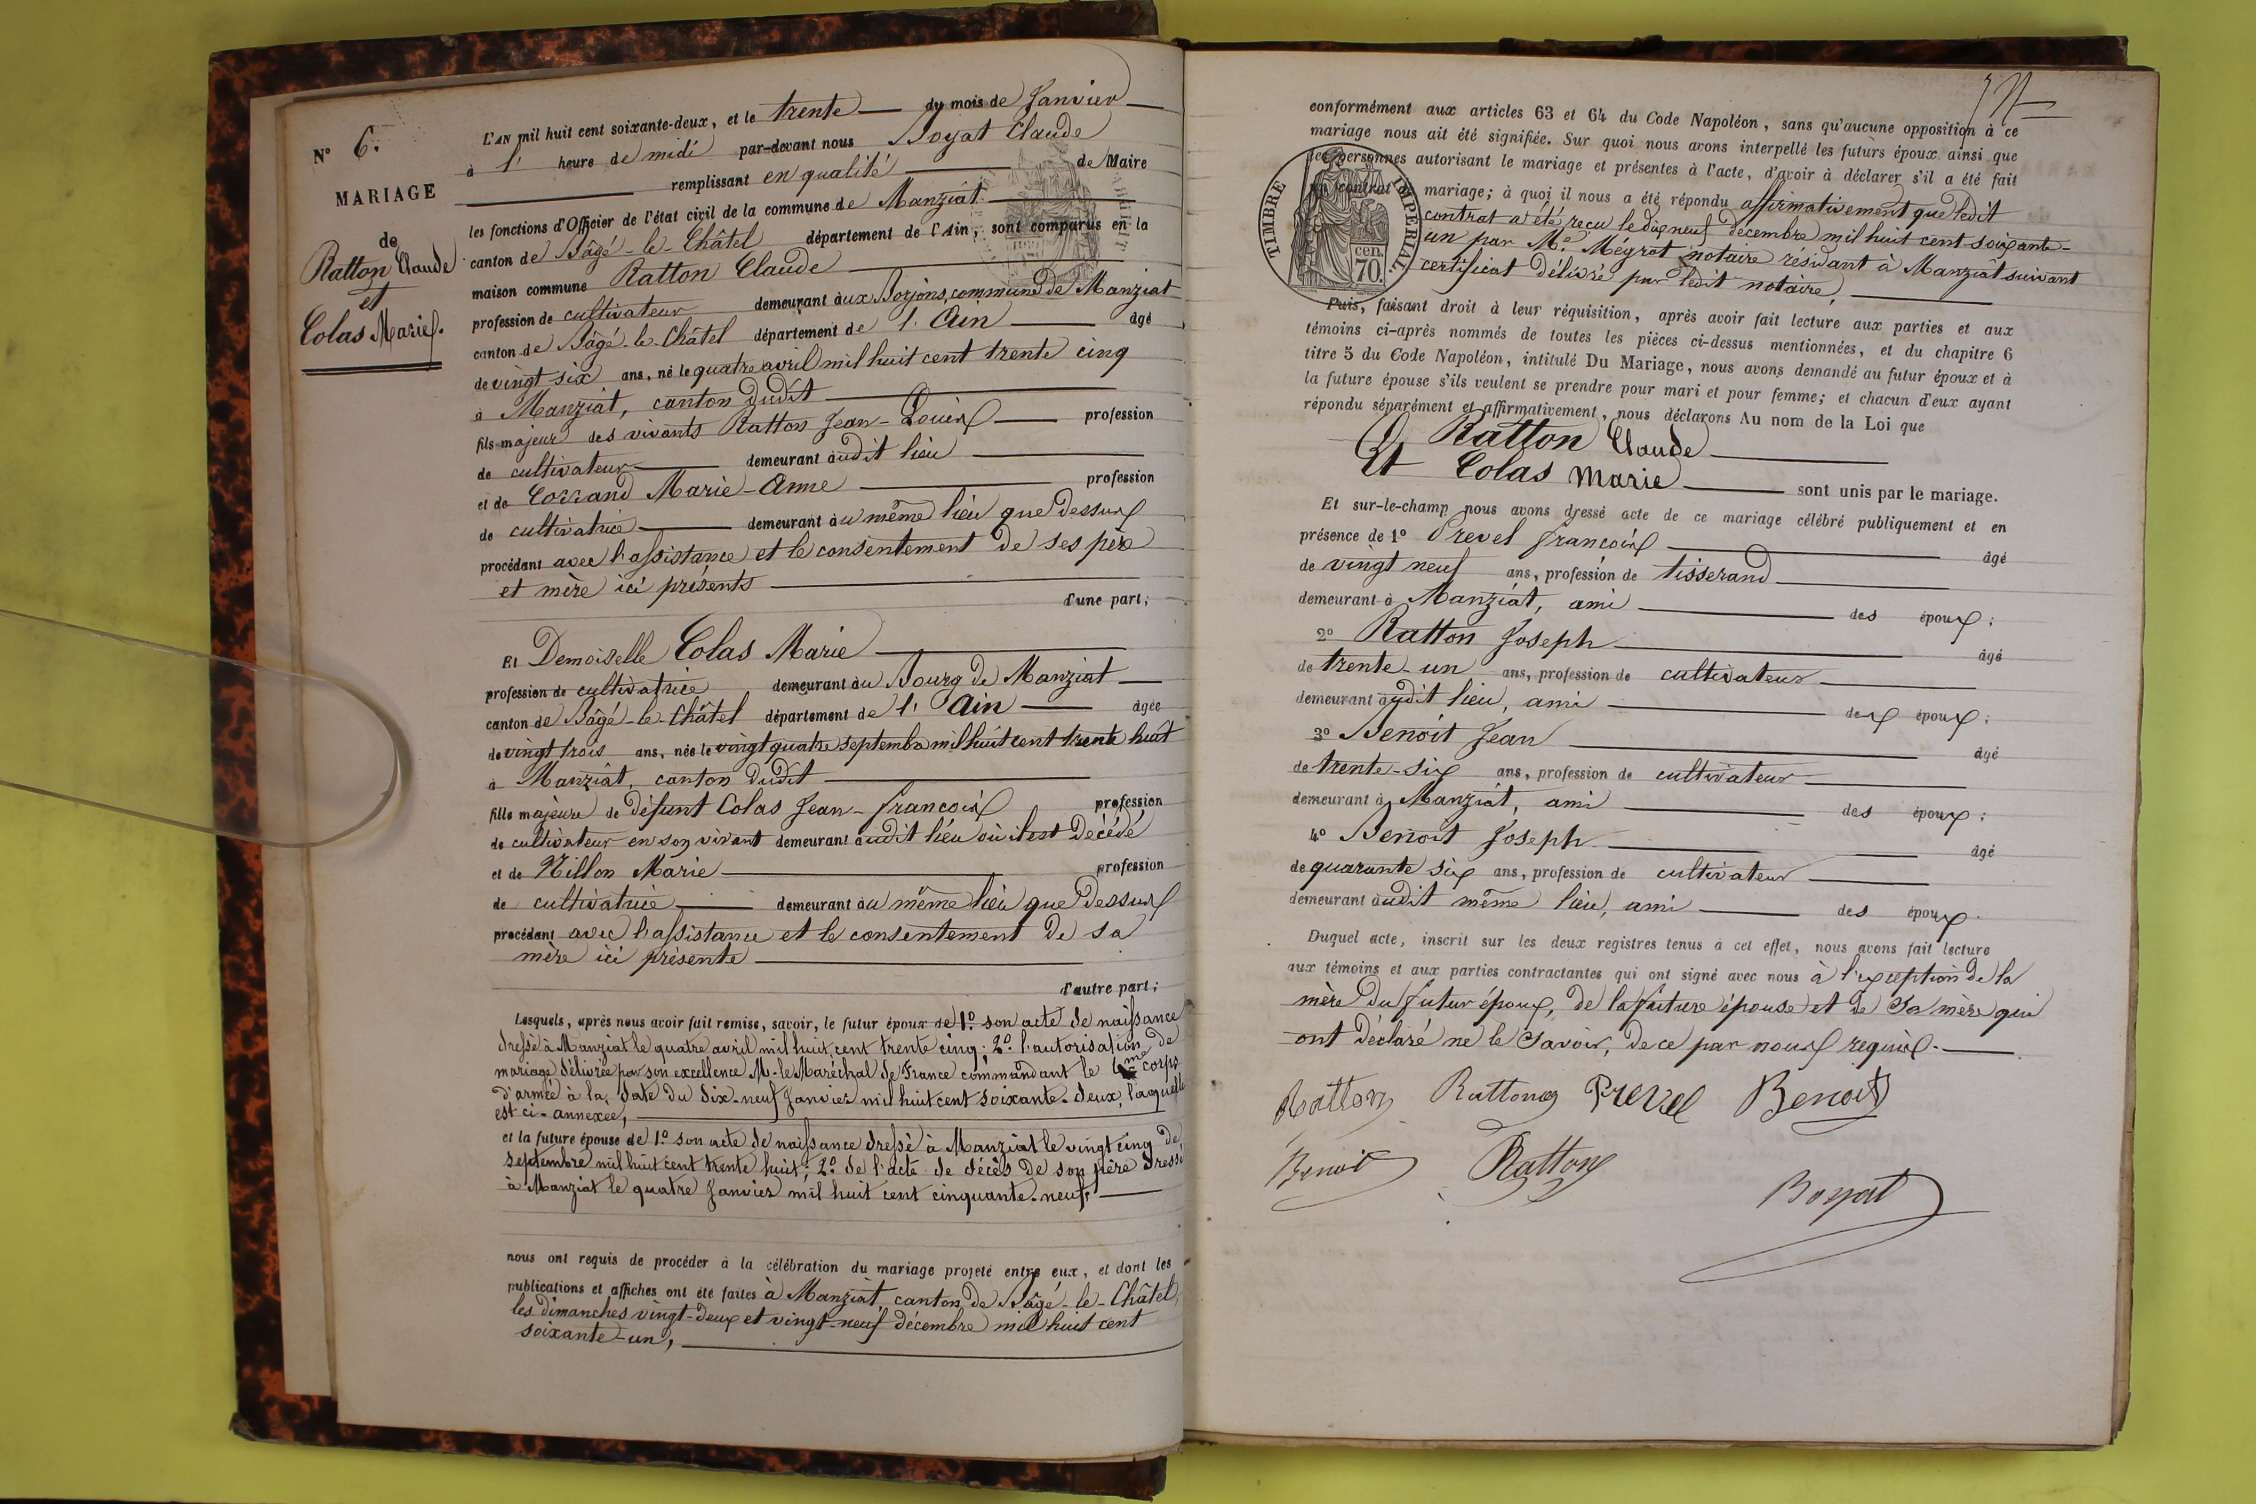 N° 6.
MARIAGE
de
Ratton Claude
et
Colas Marie.
L'AN mil huit cent soixante-deux, et le trente du mois de Janvier
à 1' heure de midi par-devant nous Boyat Claude
remplissant en qualité de Maire
les fonctions d'Officier de l'état civil de la commune de Manziat
canton de Bâgé-le-Châtel département de l'Ain, sont comparus en la
maison commune Ratton Claude
profession de cultivateur demeurant aux Boyons, commune de Manziat
canton de Bâgé-le-Châtel département de l'Ain âgé
de vingt six ans, né le quatre avril mil huit cent trente cinq
à Manziat, canton dudit
fils majeur des vivants Ratton Jean-Louis profession
de cultivateur demeurant audit lieu
et de Corrand Marie-Anne profession
de cultivatrice demeurant au même lieu que dessus
procédant avec l'assistance et le consentement de ses père
et mère ici présents
d'une part;
Et Demoiselle Colas Marie
profession de cultivatrice demeurant au Bourg de Manziat
canton de Bâgé-le-Châtel département de l'Ain âgée
de vingt trois ans, née le vingt quatre septembre mil huit cent trente huit
à Manziat, canton dudit
fille majeure de défunt Colas Jean-François profession
de cultivateur en son vivant demeurant audit lieu où il est décédé
et de Nillon Marie profession
de cultivatrice demeurant au même lieu que dessus
procédant avec l'assistance et le consentement de sa
mère ici présente
d'autre part;
Lesquels, après nous avoir fait remise, savoir, le futur époux de 1.° son acte de naissance
dressé à Manziat le quatre avril mil huit cent trente cinq; 2.° l'autorisation de
mariage délivrée par son excellence M. le Maréchal de France commandant le me corps
d'armée à la date du dix-neuf Janvier mil huit cent soixante-deux, laquelle
est ci-annexée,
et la future épouse de 1.° son acte de naissance dressé à Manziat le vingt cinq de
septembre mil huit cent trente huit; 2.° de l'acte de décès de son père dressé
à Manziat le quatre Janvier mil huit cent cinquante-neuf,
nous ont requis de procéder à la célébration du mariage projeté entre eux, et dont les
publications et affiches ont été faites à Manziat, canton de Bâgé-le-Châtel,
les dimanches vingt-deux et vingt-neuf décembre mil huit cent
soixante-un,
conformément aux articles 63 et 64 du Code Napoléon, sans qu'aucune opposition à ce
mariage nous ait été signifiée. Sur quoi nous avons interpellé les futurs époux ainsi que
les personnes autorisant le mariage et présentes à l'acte, d'avoir à déclarer s'il a été fait
un contrat de mariage; à quoi il nous a été répondu affirmativement que ledit
contrat a été reçu le dix neuf décembre mil huit cent soixante-
un par Me Méyrat notaire résidant à Manziat suivant
certificat délivré par ledit notaire,
TIMBRE IMPÉRIAL
70 cen.
Puis, faisant droit à leur réquisition, après avoir fait lecture aux parties et aux
témoins ci-après nommés de toutes les pièces ci-dessus mentionnées, et du chapitre 6
titre 5 du Code Napoléon, intitulé Du Mariage, nous avons demandé au futur époux et à
la future épouse s'ils veulent se prendre pour mari et pour femme; et chacun d'eux ayant
répondu séparément et affirmativement, nous déclarons Au nom de la Loi que
Ratton Claude
Et Colas Marie sont unis par le mariage.
Et sur-le-champ nous avons dressé acte de ce mariage célébré publiquement et en
présence de 1° Prevel François âgé
de vingt neuf ans, profession de tisserand
demeurant à Manziat, ami des époux;
2° Ratton Joseph âgé
de trente-un ans, profession de cultivateur
demeurant audit lieu, ami des époux;
3° Benoit Jean âgé
de trente-six ans, profession de cultivateur
demeurant à Manziat, ami des époux;
4° Benoit Joseph âgé
de quarante six ans, profession de cultivateur
demeurant audit même lieu, ami des époux.
Duquel acte, inscrit sur les deux registres tenus à cet effet, nous avons fait lecture
aux témoins et aux parties contractantes qui ont signé avec nous à l'exception de la
mère du futur époux, de la future épouse et de sa mère qui
ont déclaré ne le savoir, de ce par nous requis.
Ratton Ratton Prevel Benoit
Benoit Ratton
Boyat